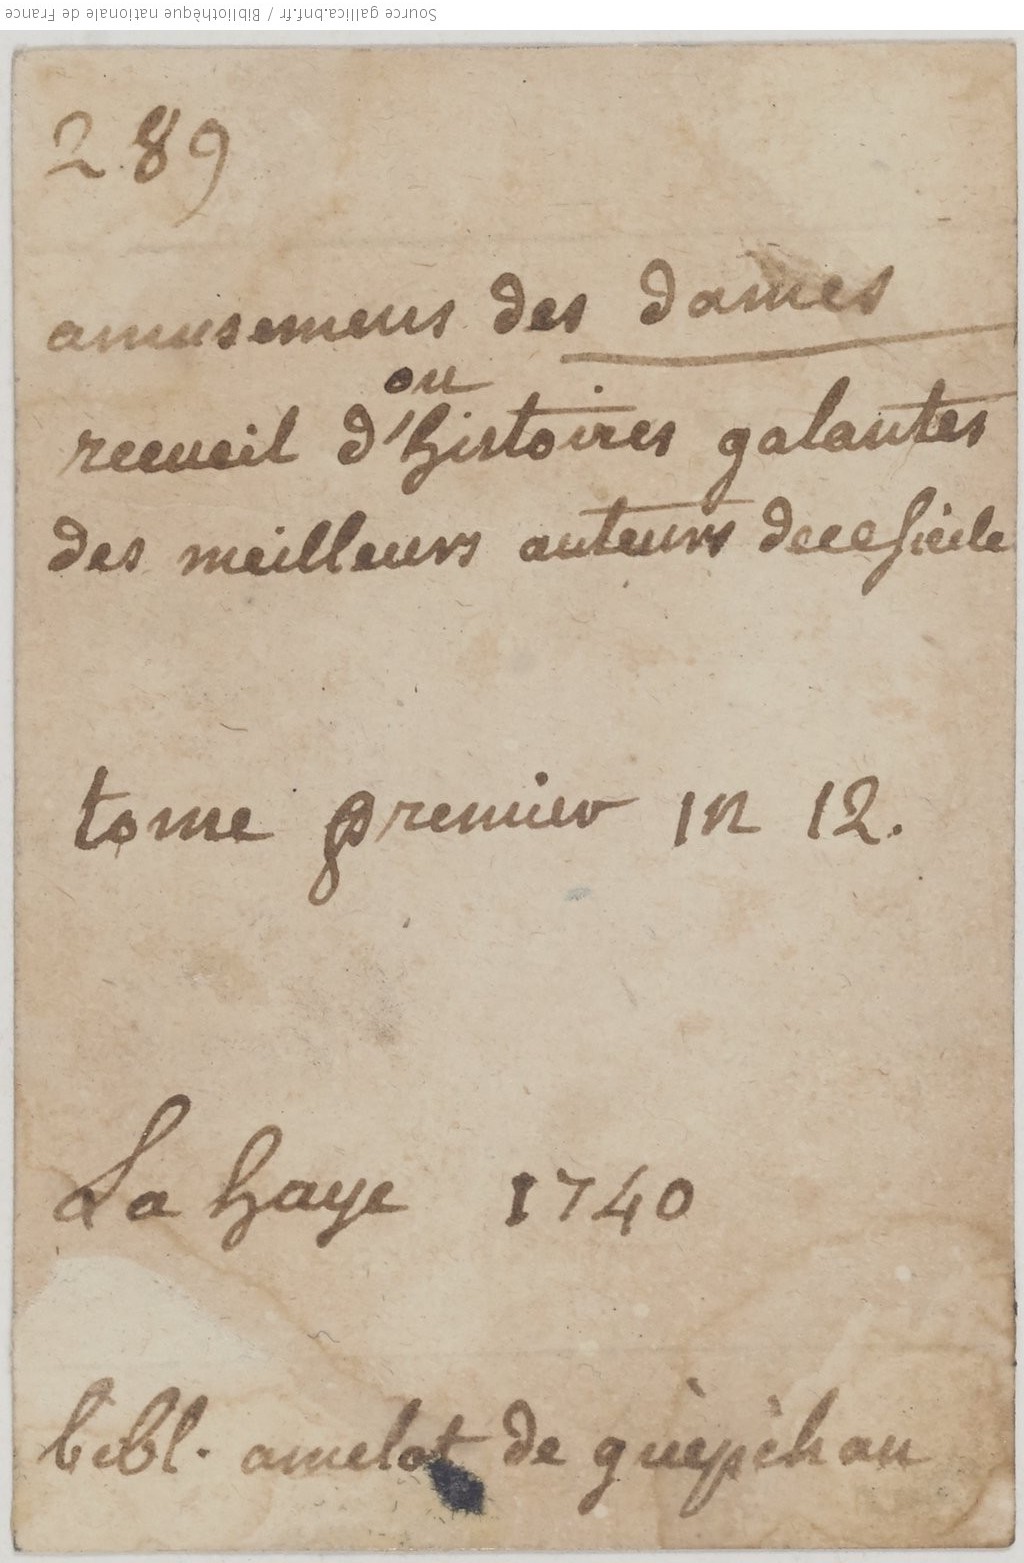 Source gallica.bnf.fr / Bibliothèque nationale de France
289
amusemens des dames
ou
recueil d'histoires galantes
des meilleurs auteurs de ce siecle
tome premier in 12.
La haye 1740
bibl. amelot de